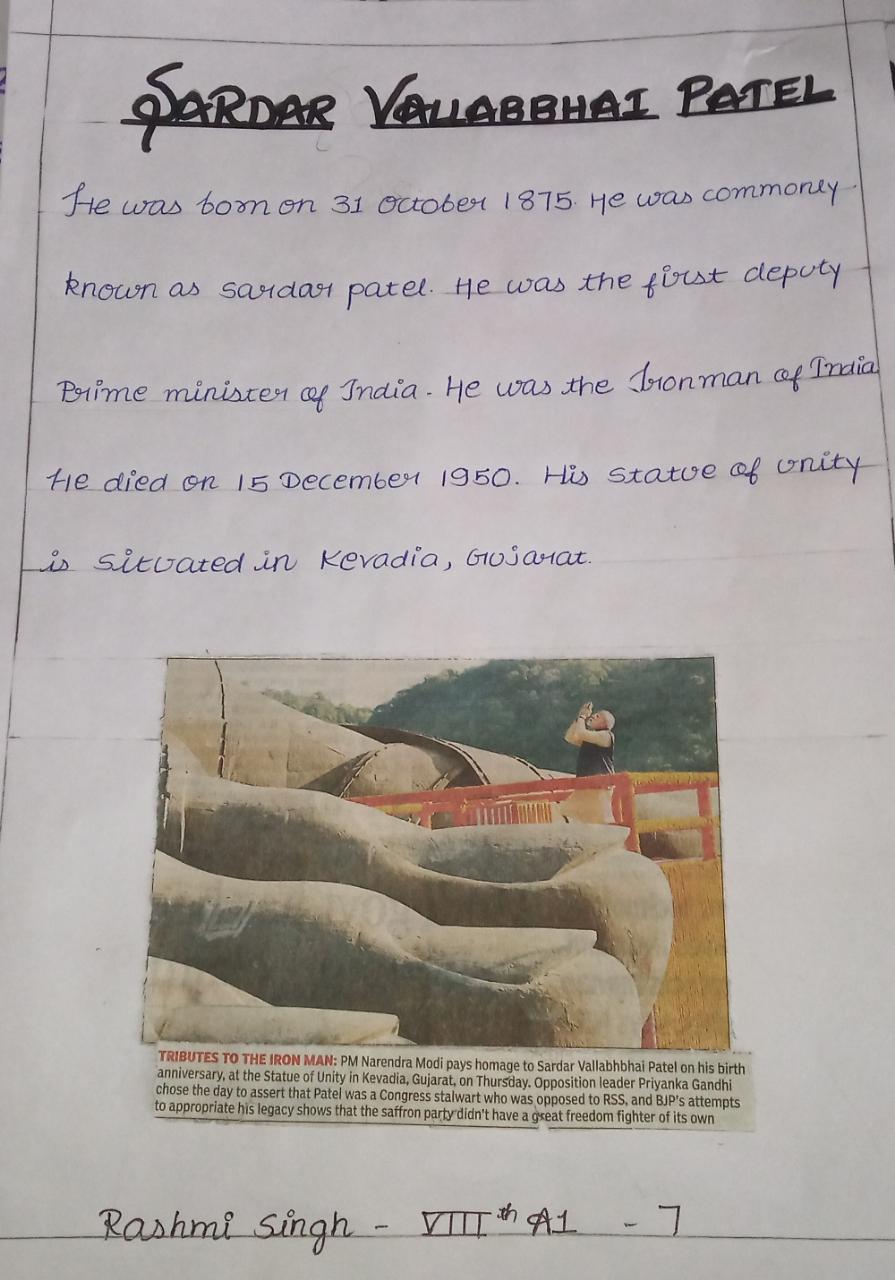 SARDAR VALLABBHAI PATEL
He was born on 31 October 1875. He was commonly
known as sardar patel. He was the first deputy
Prime minister of India. He was the Ironman of India
He died on 15 December 1950. His statue of unity
is situated in Kevadia, Gujarat.
TRIBUTES TO THE IRON MAN: PM Narendra Modi pays homage to Sardar Vallabhbhai Patel on his birth
anniversary, at the Statue of Unity in Kevadia, Gujarat, on Thursday. Opposition leader Priyanka Gandhi
chose the day to assert that Patel was a Congress stalwart who was opposed to RSS, and BJP's attempts
to appropriate his legacy shows that the saffron party didn't have a great freedom fighter of its own
Rashmi Singh - VIIIth A1 - 7